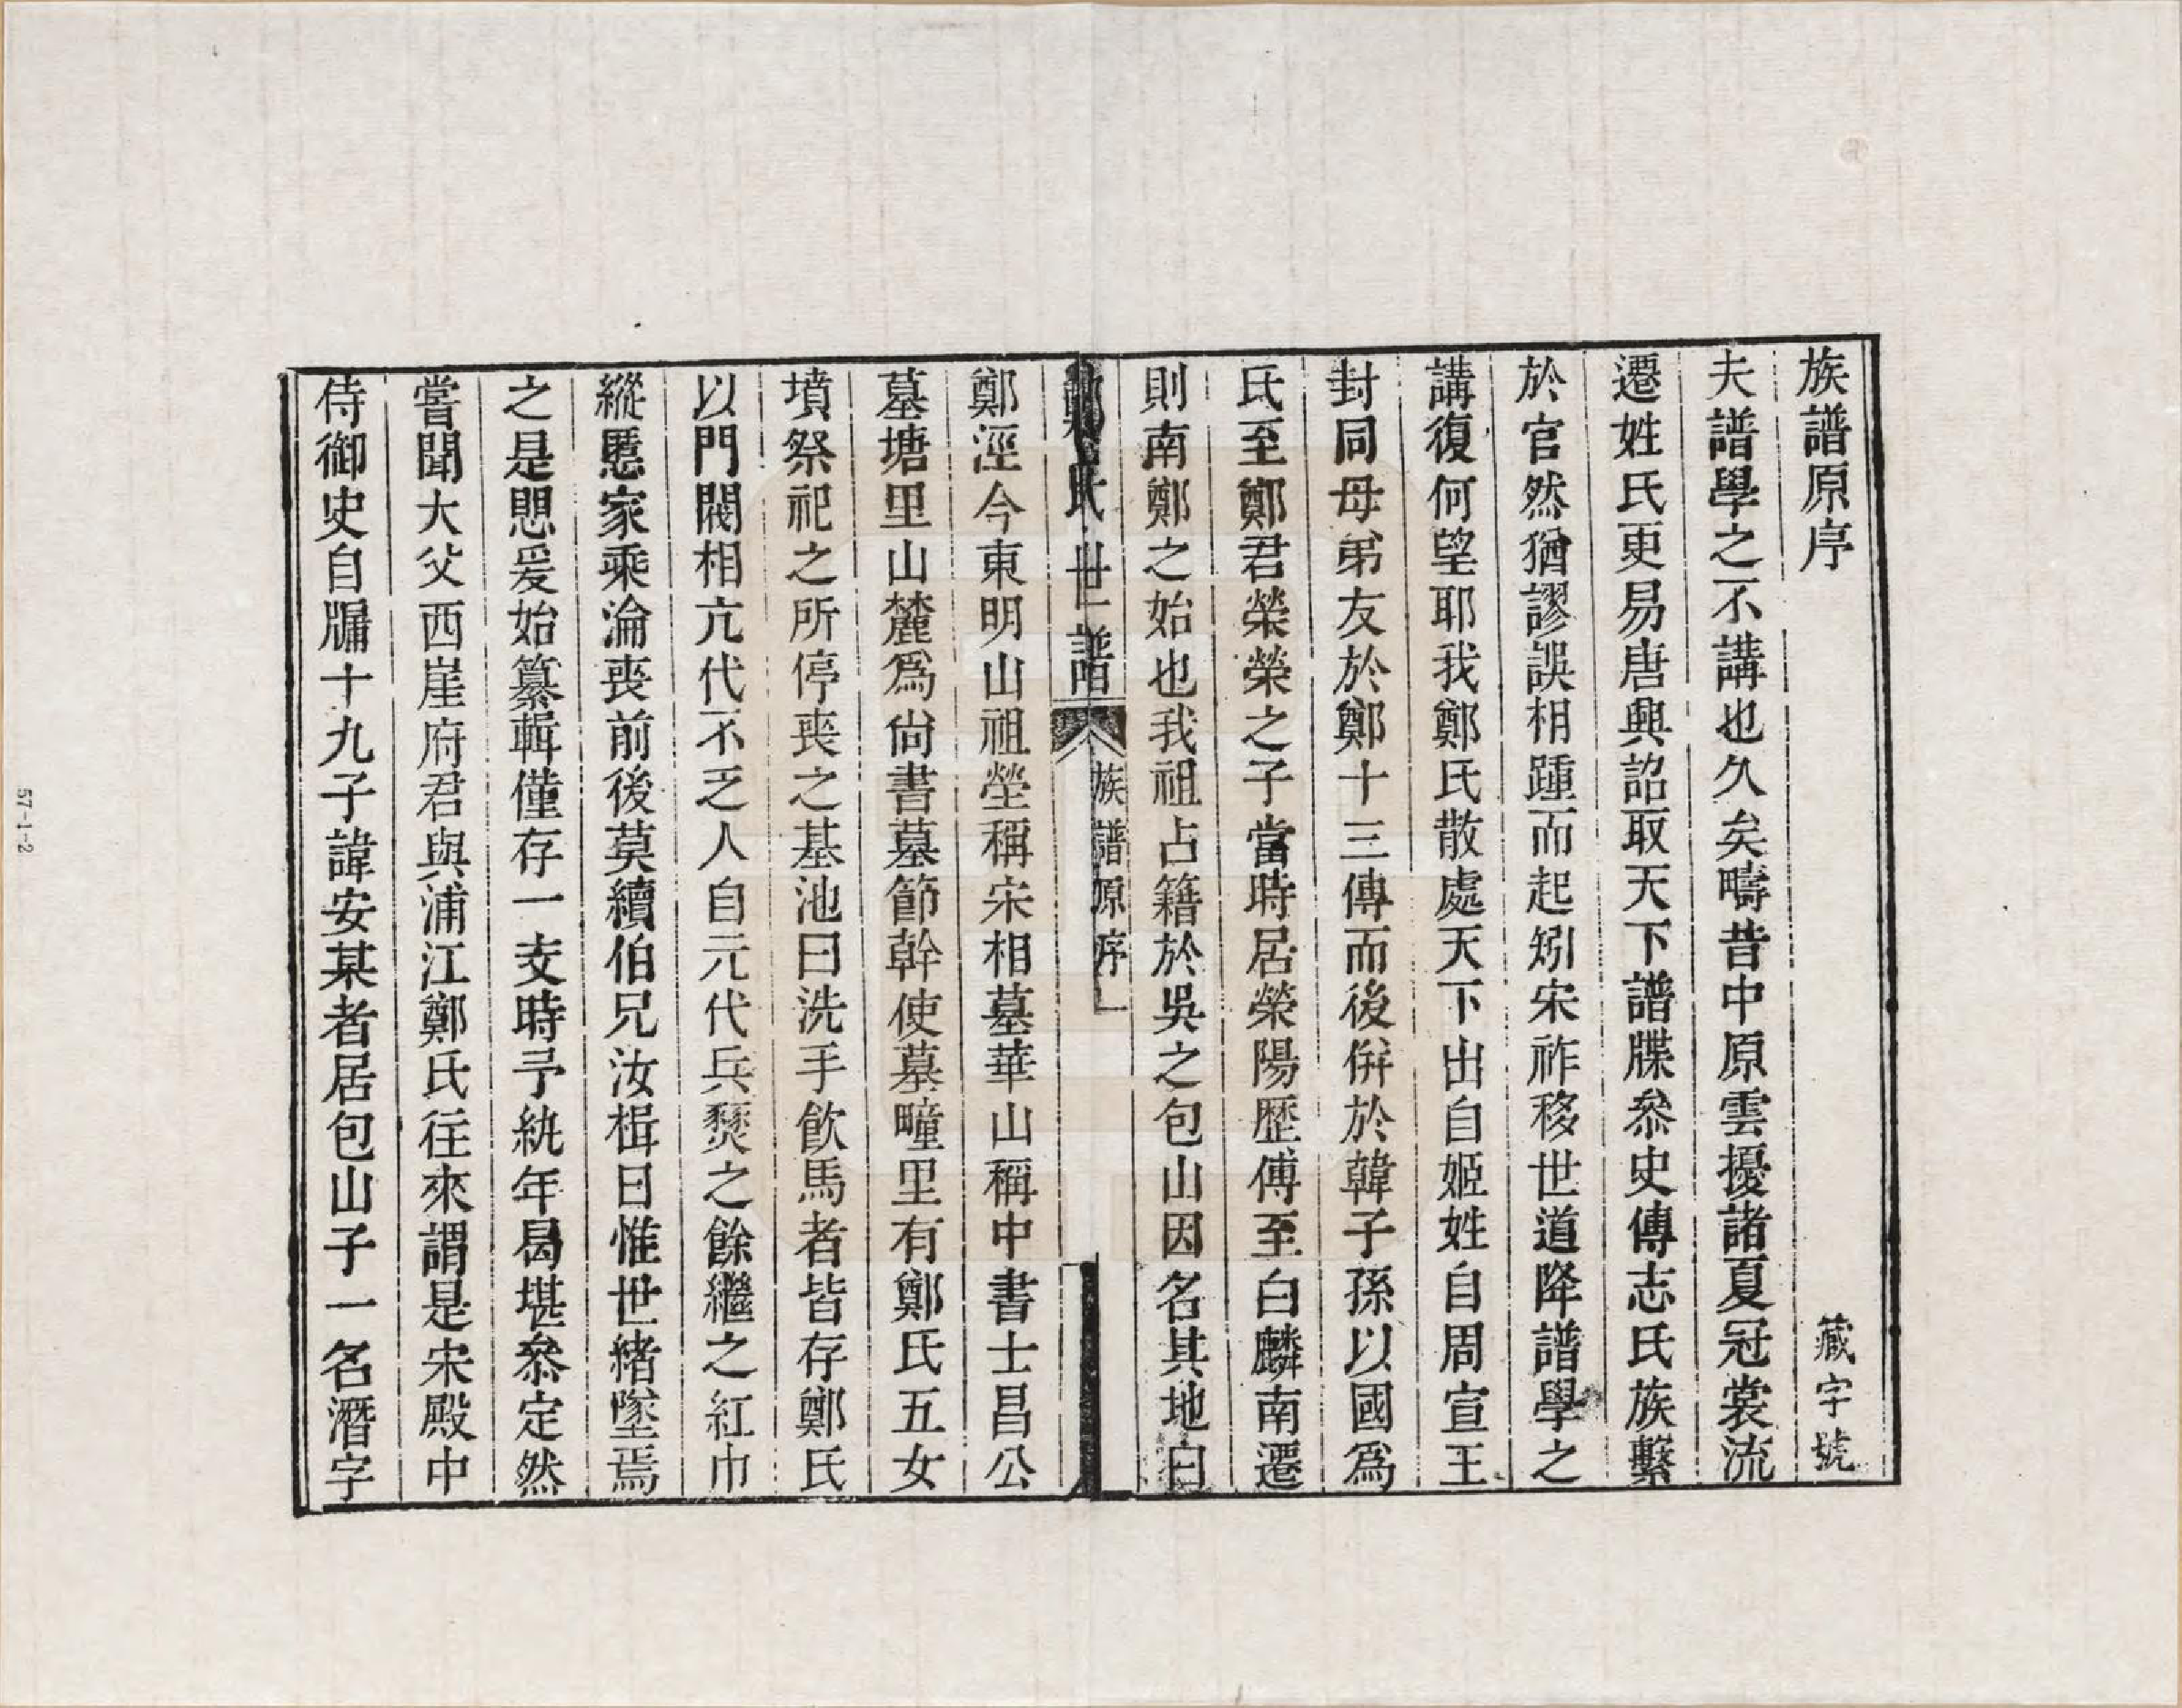 族譜原序 藏字號
夫譜學之不講也久矣疇昔中原雲擾諸夏冠裳流
遷姓氏更易唐興詔取天下譜牒叅史傳志氏族繫
於官然猶謬誤相踵而起矧宋祚移世道降譜學之
講復何望耶我鄭氏散處天下出自姬姓自周宣王
封同母弟友於鄭十三傳而後併於韓子孫以國爲
氏至鄭君榮榮之子當時居滎陽歷傅至白麟南遷
則南鄭之始也我祖占籍於吳之包山因名其地曰
鄭氏世譜 族譜原序 一
鄭涇今東明山祖塋稱宋相墓華山稱中書士昌公
墓塘里山麓爲尙書墓節幹使墓疃里有鄭氏五女
墳祭祀之所停喪之基池曰洗手飮馬者皆存鄭氏
以門閥相亢代不乏人自元代兵燹之餘繼之紅巾
縱慝家乘淪喪前後莫續伯兄汝楫曰惟世緖墜焉
之是思爰始纂輯僅存一支時予紈年曷堪叅定然
嘗聞大父西崖府君與浦江鄭氏往來謂是宋殿中
侍御史自牖十九子諱安某者居包山子一名潛字
57-1-2